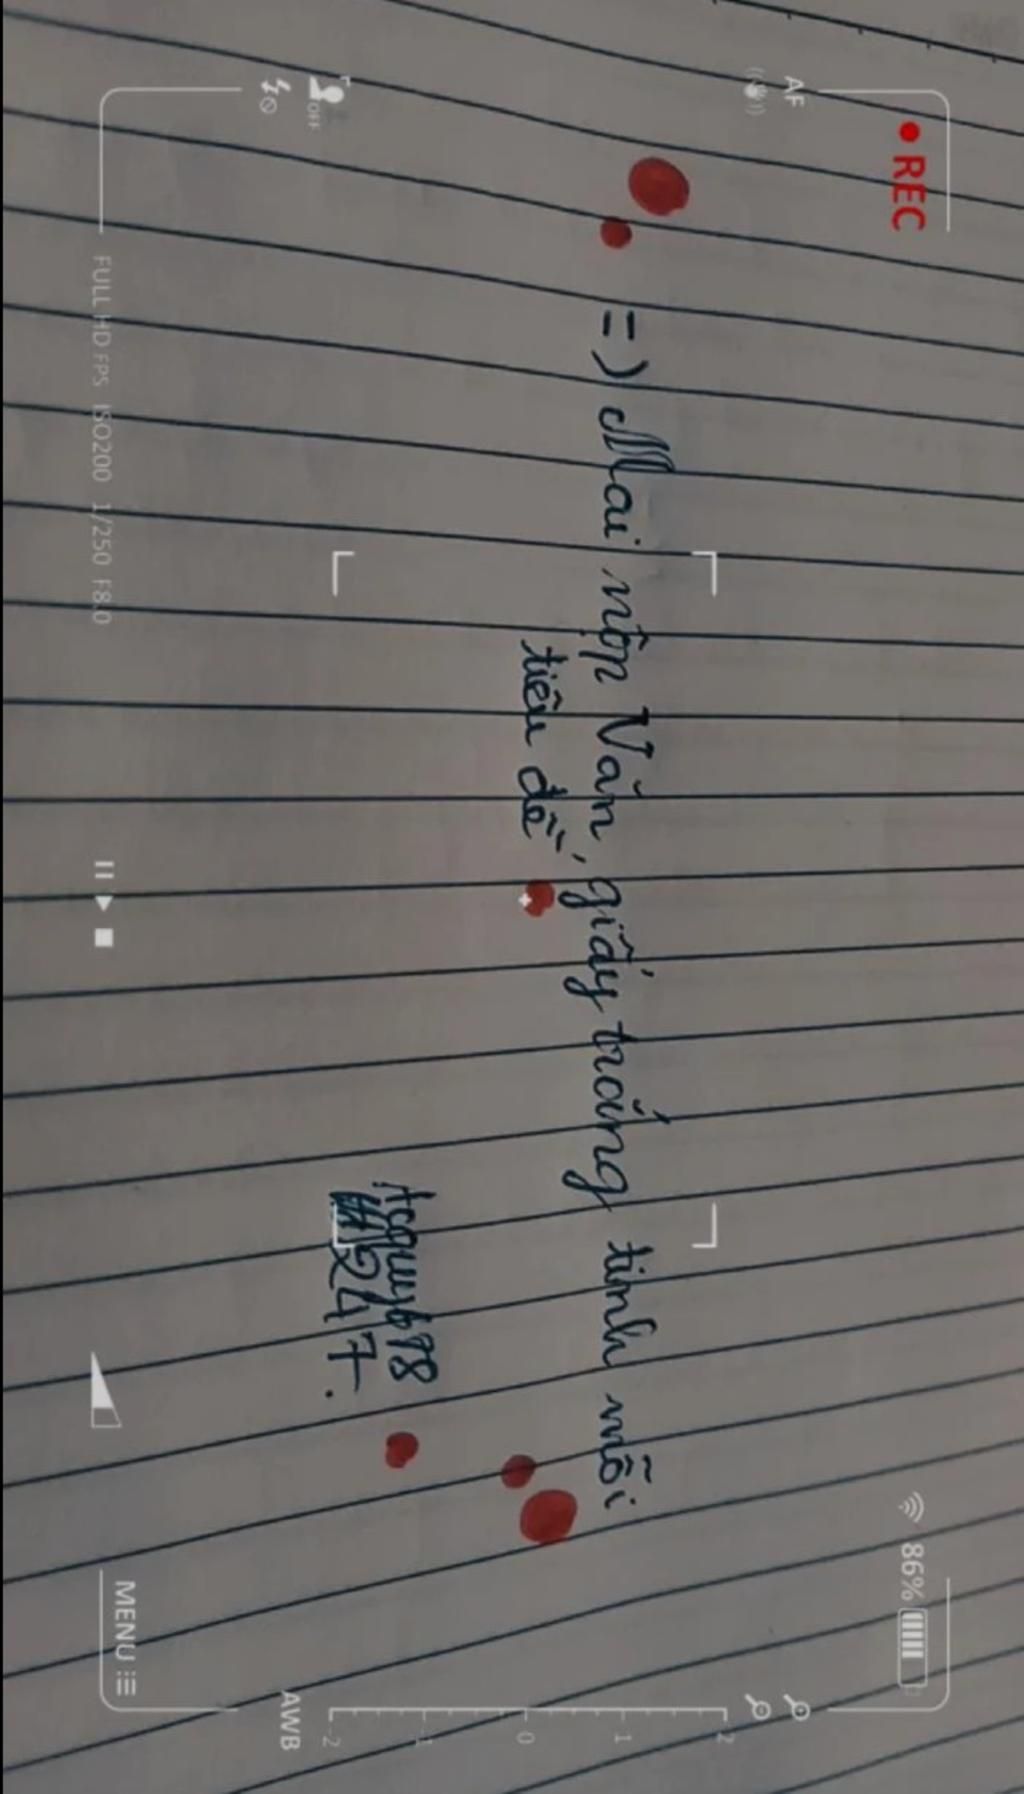 REC
AF
86%
=) Mai nộp Văn, giấy trắng tinh mỗi
tiêu đề
Acquy678
247.
OFF
2
1
0
-1
-2
AWB
FULL HD FPS ISO200 1/250 F8.0
MENU